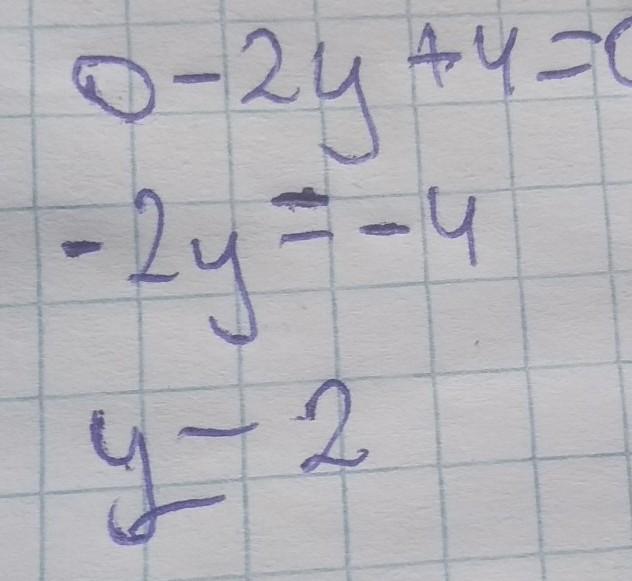 0 - 2y + 4 = 0
-2y = -4
y - 2